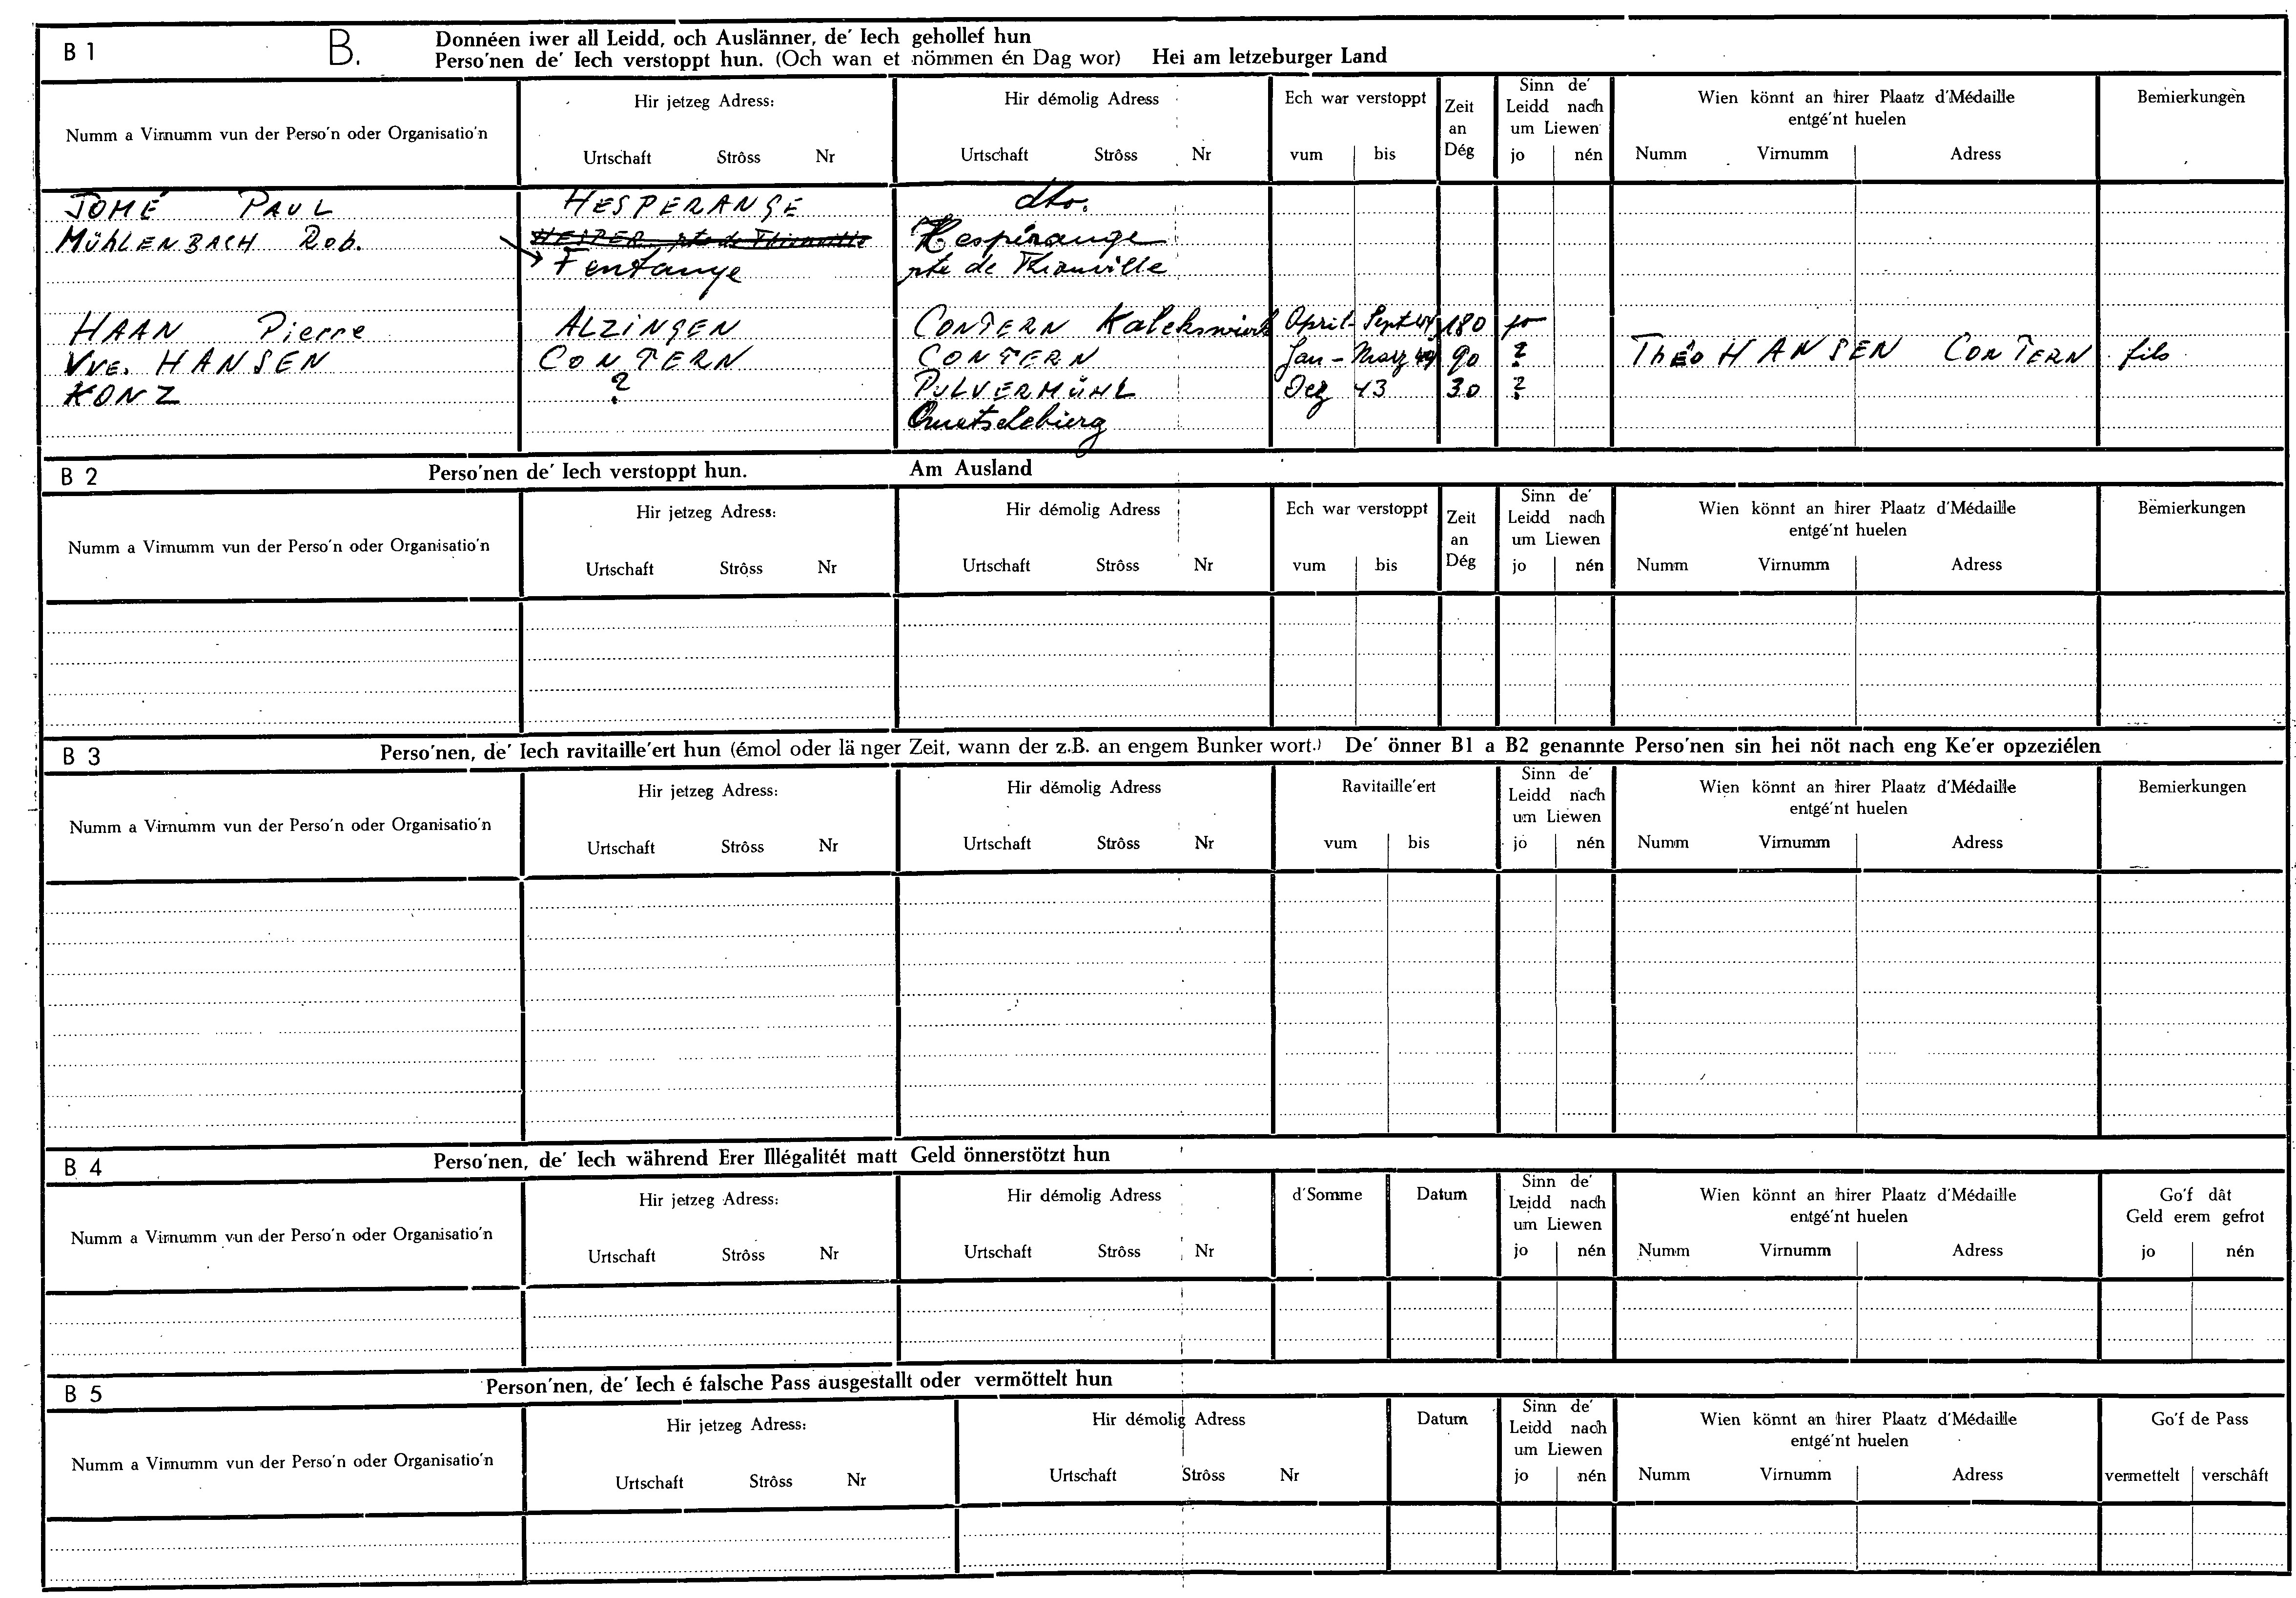 B 1 B. Donnéen iwer all Leidd, och Auslänner, de' Iech gehollef hun
Perso'nen de' Iech verstoppt hun. (Och wan et nömmen én Dag wor) Hei am letzeburger Land
Numm a Virnumm vun der Perso'n oder Organisatio'n
Hir jetzeg Adress:
Urtschaft Strôss Nr
Hir démolig Adress
Urtschaft Strôss Nr
Ech war verstoppt
vum bis
Zeit
an
Dég
Sinn de'
Leidd nach
um Liewen
jo nén
Wien könnt an hirer Plaatz d'Médaille
entgé'nt huelen
Numm Virnumm Adress
Bemierkungen
JOMÉ PAUL HESPERANGE dto.
MÜHLENBACH Rob. HESPER, rte de Thionville Hespérange
Fentange rte de Thionville
HAAN Pierre ALZINGEN CONTERN April - Sept 44 180 jo
VVE. HANSEN CONTERN CONTERN Jan - Marz 44 90 ? Théo HANSEN CONTERN fils
KONZ ? PULVERMÜHL Dez 43 30 ?
Quetschebierg
B 2 Perso'nen de' Iech verstoppt hun. Am Ausland
Numm a Virnumm vun der Perso'n oder Organisatio'n
Hir jetzeg Adress:
Urtschaft Strôss Nr
Hir démolig Adress
Urtschaft Strôss Nr
Ech war verstoppt
vum bis
Zeit
an
Dég
Sinn de'
Leidd nach
um Liewen
jo nén
Wien könnt an hirer Plaatz d'Médaille
entgé'nt huelen
Numm Virnumm Adress
Bemierkungen
B 3 Perso'nen, de' Iech ravitaille'ert hun (émol oder länger Zeit, wann der z.B. an engem Bunker wort.) De' önner B1 a B2 genannte Perso'nen sin hei nöt nach eng Ke'er opzeziélen
Numm a Virnumm vun der Perso'n oder Organisatio'n
Hir jetzeg Adress:
Urtschaft Strôss Nr
Hir démolig Adress
Urtschaft Strôss Nr
Ravitaille'ert
vum bis
Sinn de'
Leidd nach
um Liewen
jo nén
Wien könnt an hirer Plaatz d'Médaille
entgé'nt huelen
Numm Virnumm Adress
Bemierkungen
B 4 Perso'nen, de' Iech während Erer Illégalitét matt Geld önnerstötzt hun
Numm a Virnumm vun der Perso'n oder Organisatio'n
Hir jetzeg Adress:
Urtschaft Strôss Nr
Hir démolig Adress
Urtschaft Strôss Nr
d'Somme
Datum
Sinn de'
Leidd nach
um Liewen
jo nén
Wien könnt an hirer Plaatz d'Médaille
entgé'nt huelen
Numm Virnumm Adress
Go'f dât
Geld erem gefrot
jo nén
B 5 Person'nen, de' Iech é falsche Pass ausgestallt oder vermöttelt hun
Numm a Virnumm vun der Perso'n oder Organisatio'n
Hir jetzeg Adress:
Urtschaft Strôss Nr
Hir démolig Adress
Urtschaft Strôss Nr
Datum
Sinn de'
Leidd nach
um Liewen
jo nén
Wien könnt an hirer Plaatz d'Médaille
entgé'nt huelen
Numm Virnumm Adress
Go'f de Pass
vermettelt verschâft